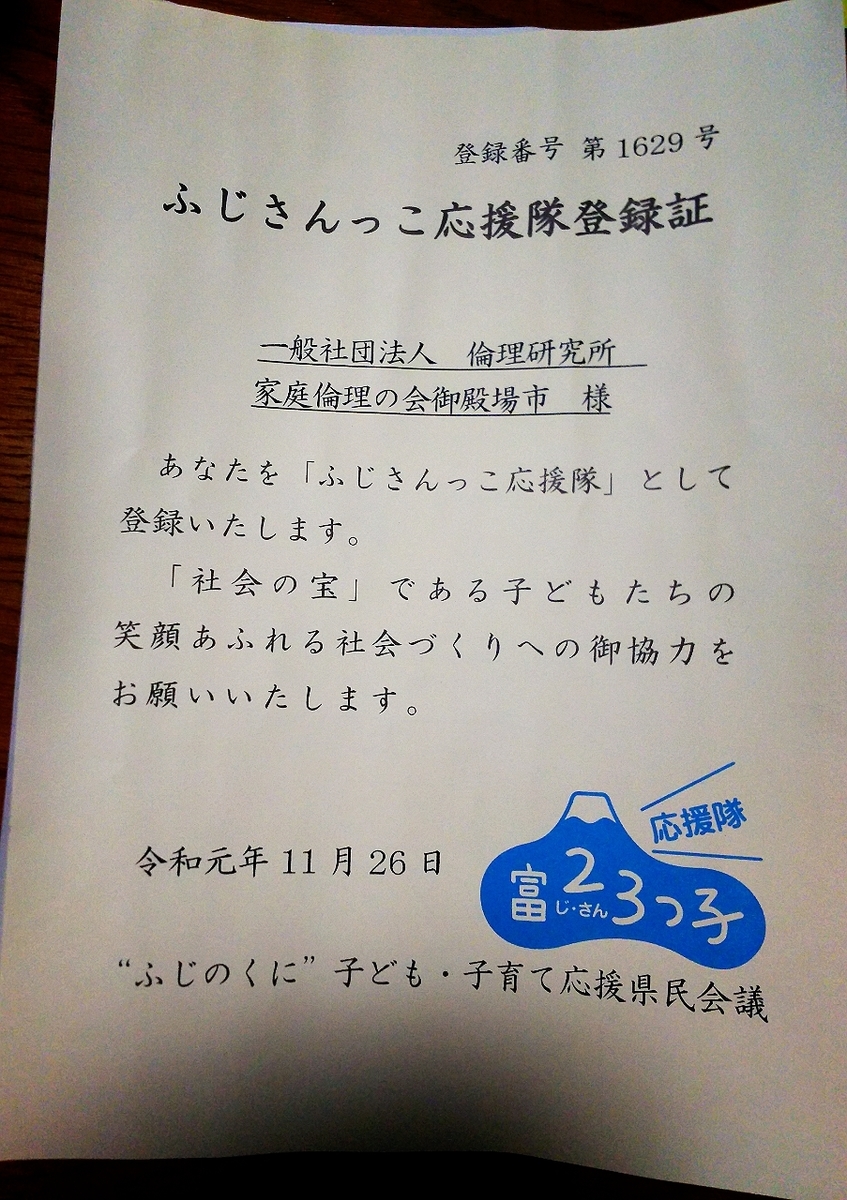 登録番号 第1629号
ふじさんっこ応援隊登録証
一般社団法人 倫理研究所
家庭倫理の会御殿場市 様
あなたを「ふじさんっこ応援隊」として
登録いたします。
「社会の宝」である子どもたちの
笑顔あふれる社会づくりへの御協力を
お願いいたします。
応援隊
富23っ子
じ・さん
令和元年11月26日
“ふじのくに”子ども・子育て応援県民会議